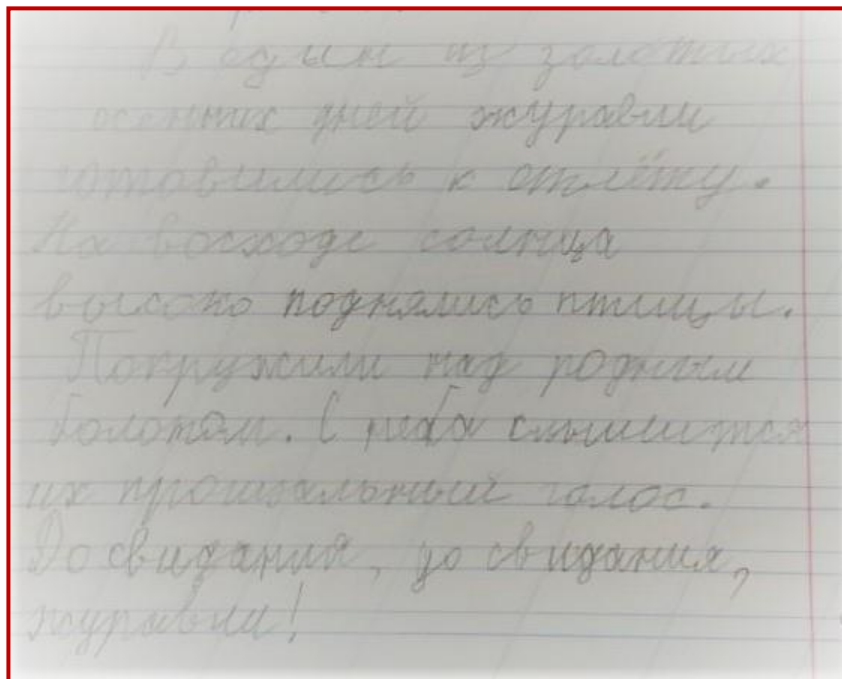 В один из золотых
осенних дней журавли
готовились к отлёту.
На восходе солнца
высоко поднялись птицы.
Покружили над родным
болотом. С неба слышится
их прощальный голос.
До свидания, до свидания,
журавли!